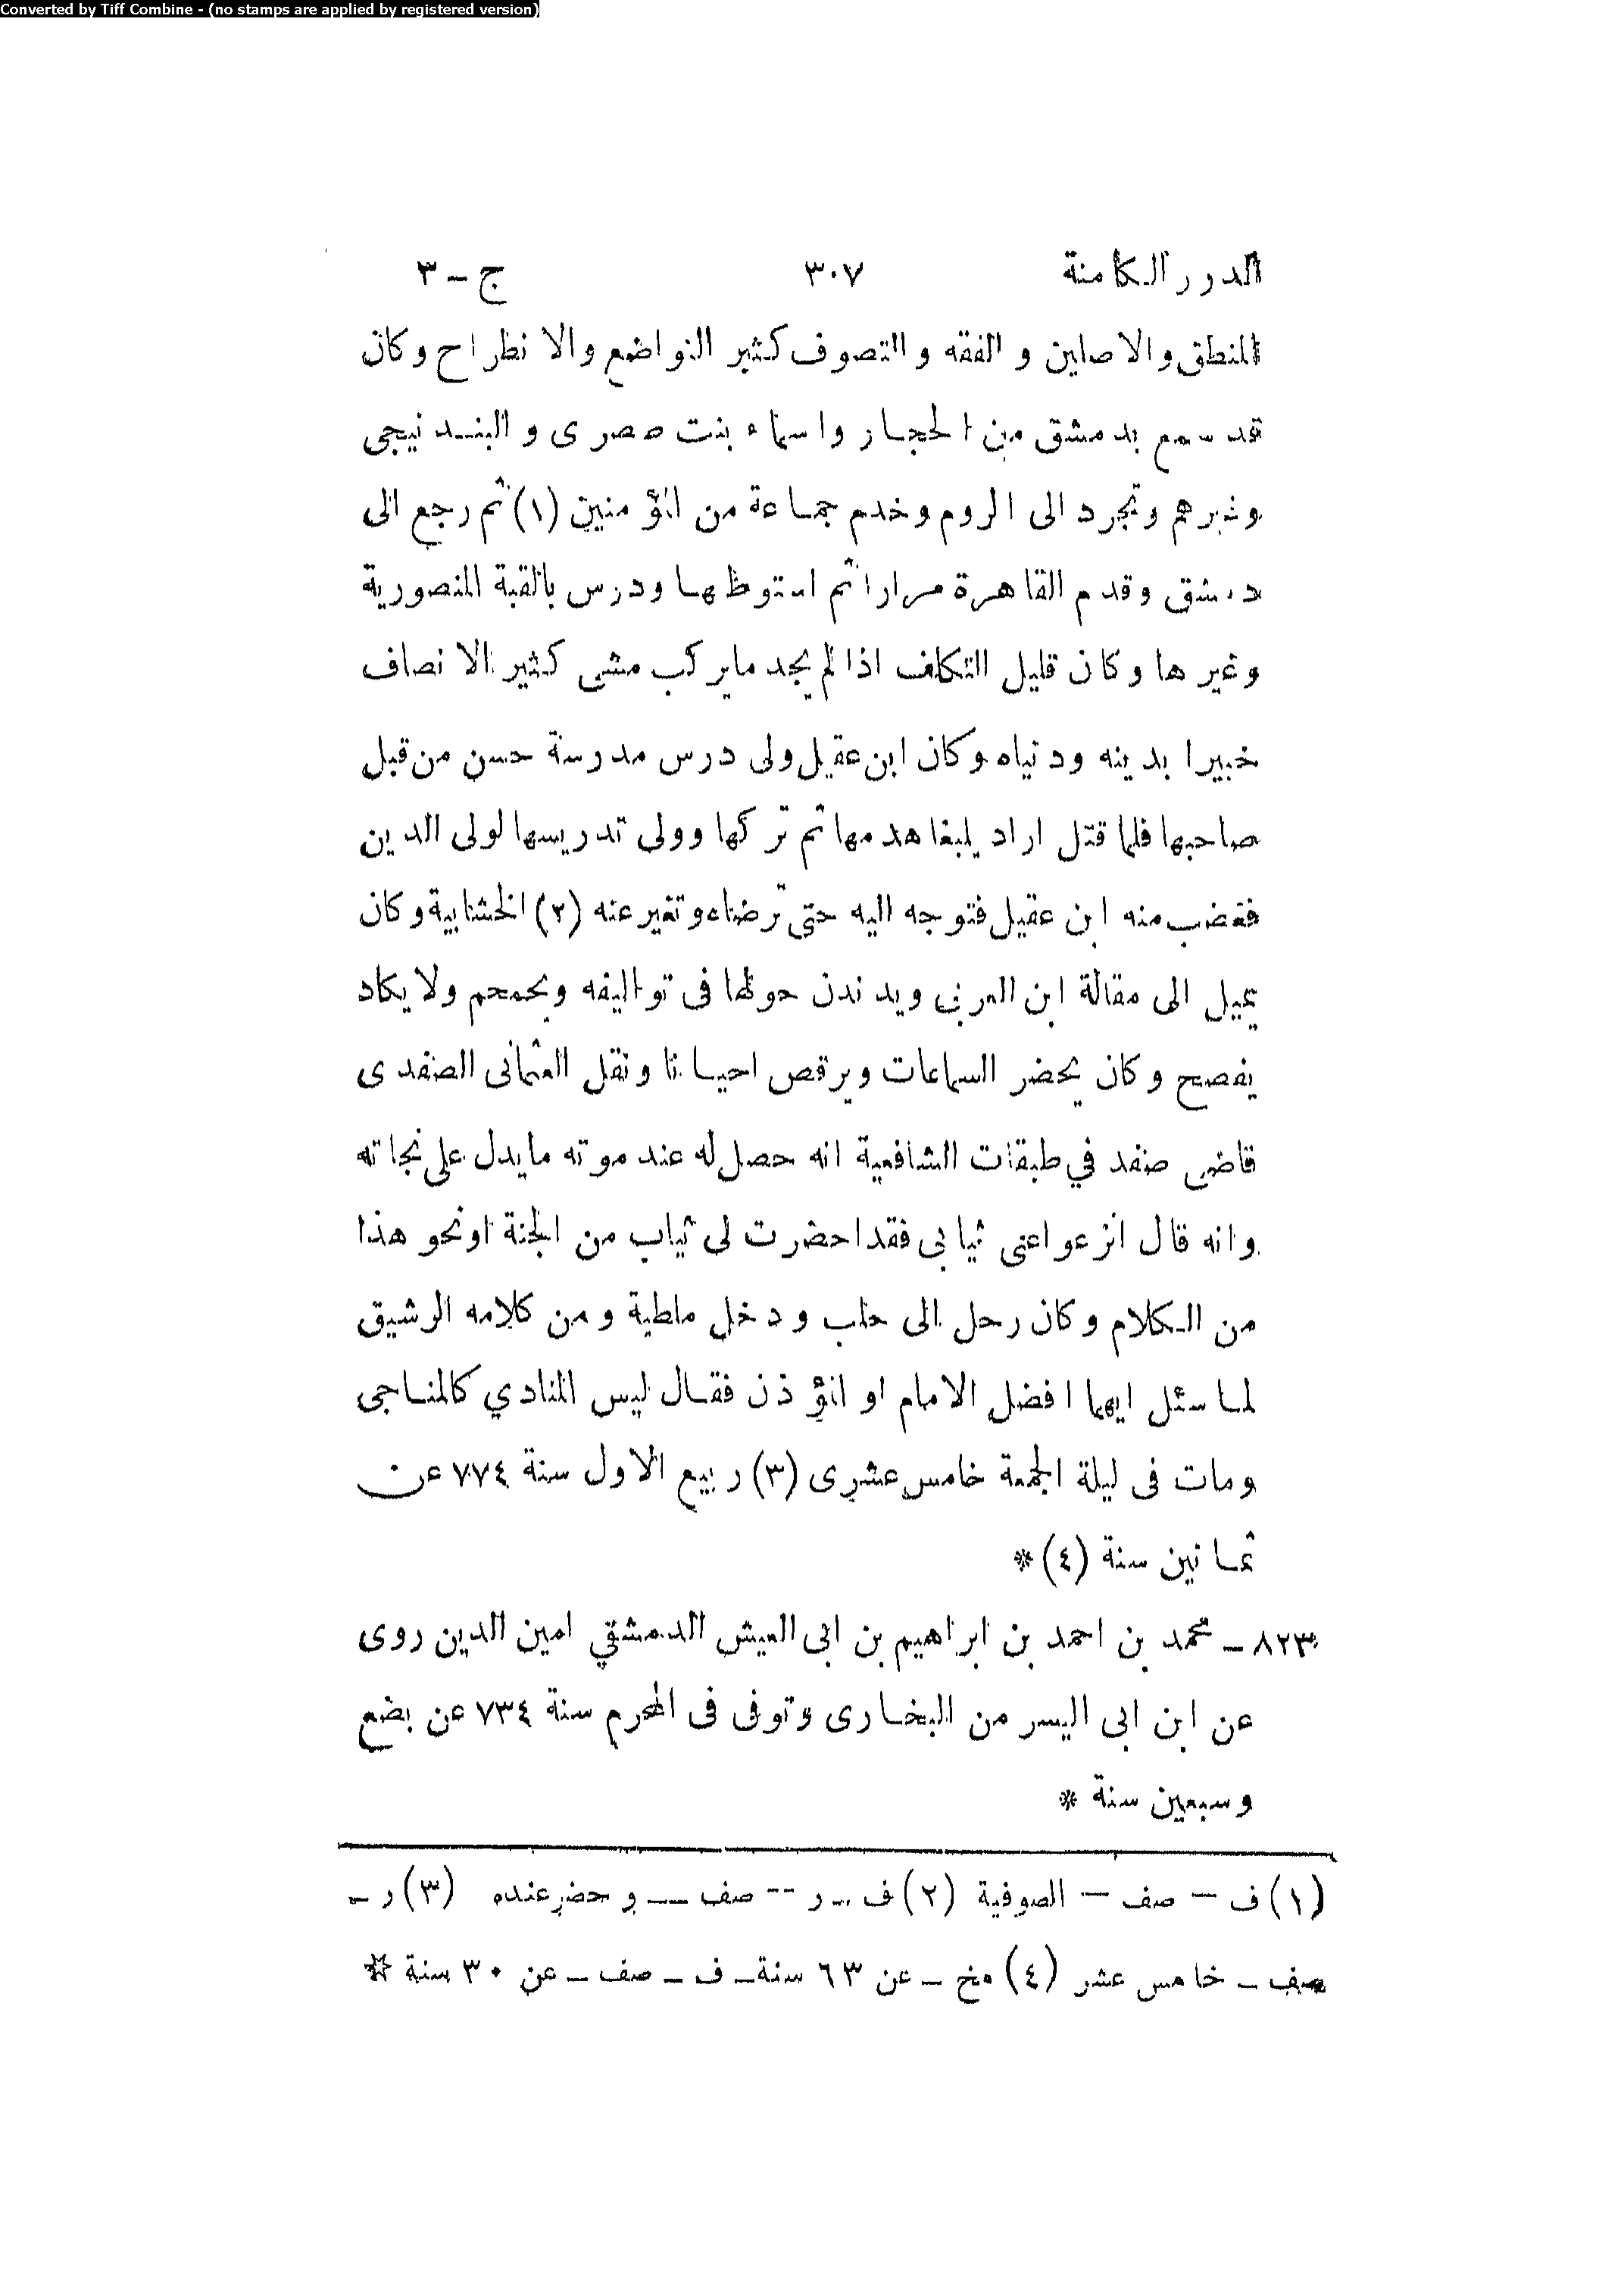 Converted by Tiff Combine - (no stamps are applied by registered version)
الدرر الكامنة ٣٠٧ ج - ٣
المنطق والاصلين و الفقه و التصوف كثير التواضع والا نطراح وكان
قد سمع بدمشق من الحجار واسماء بنت صصرى و البندنيجى
وغيرهم وتجرد الى الروم وخدم جماعة من المؤمنين (١) ثم رجع الى
دمشق وقدم القاهرة مرارا ثم استوطنها ودرس بالقبة المنصورية
وغيرها وكان قليل التكلف اذا لم يجد مايركب مشى كثير الانصاف
خبيرا بدينه ودنياه وكان ابن عقيل ولى درس مدرسة حسن من قبل
صاحبها فلما قتل اراد يلبغا هدمها ثم تركها وولى تدريسها لولى الدين
فغضب منه ابن عقيل فتوجه اليه حتى ترضاه وتغير عنه (٢) الخشابية وكان
يميل الى مقالة ابن العربى ويدندن حولها فى تواليفه ويحمحم ولا يكاد
يفصح وكان يحضر السماعات ويرقص احيانا ونقل العثمانى الصفدى
قاضى صفد في طبقات الشافعية انه حصل له عند موته مايدل على نجاته
وانه قال انزعوا عنى ثيابى فقد احضرت لى ثياب من الجنة اونحو هذا
من الكلام وكان رحل الى حلب و دخل ملطية و من كلامه الرشيق
لما سئل ايهما افضل الامام او المؤذن فقال ليس المنادي كالمناجى
ومات فى ليلة الجمعة خامس عشرى (٣) ربيع الاول سنة ٧٧٤ عن
ثمانين سنة (٤) *
٨٢٣ - محمد بن احمد بن ابراهيم بن ابى العيش الدمشقي امين الدين روى
عن ابن ابى اليسر من البخارى وتوفى فى المحرم سنة ٧٣٤ عن بضع
وسبعين سنة *
(١) ف - صف - الصوفية (٢) ف - ر - صف - و حضر عنده (٣) ر -
صف - خامس عشر (٤) مخ - عن ٦٣ سنة - ف - صف - عن ٣٠ سنة *